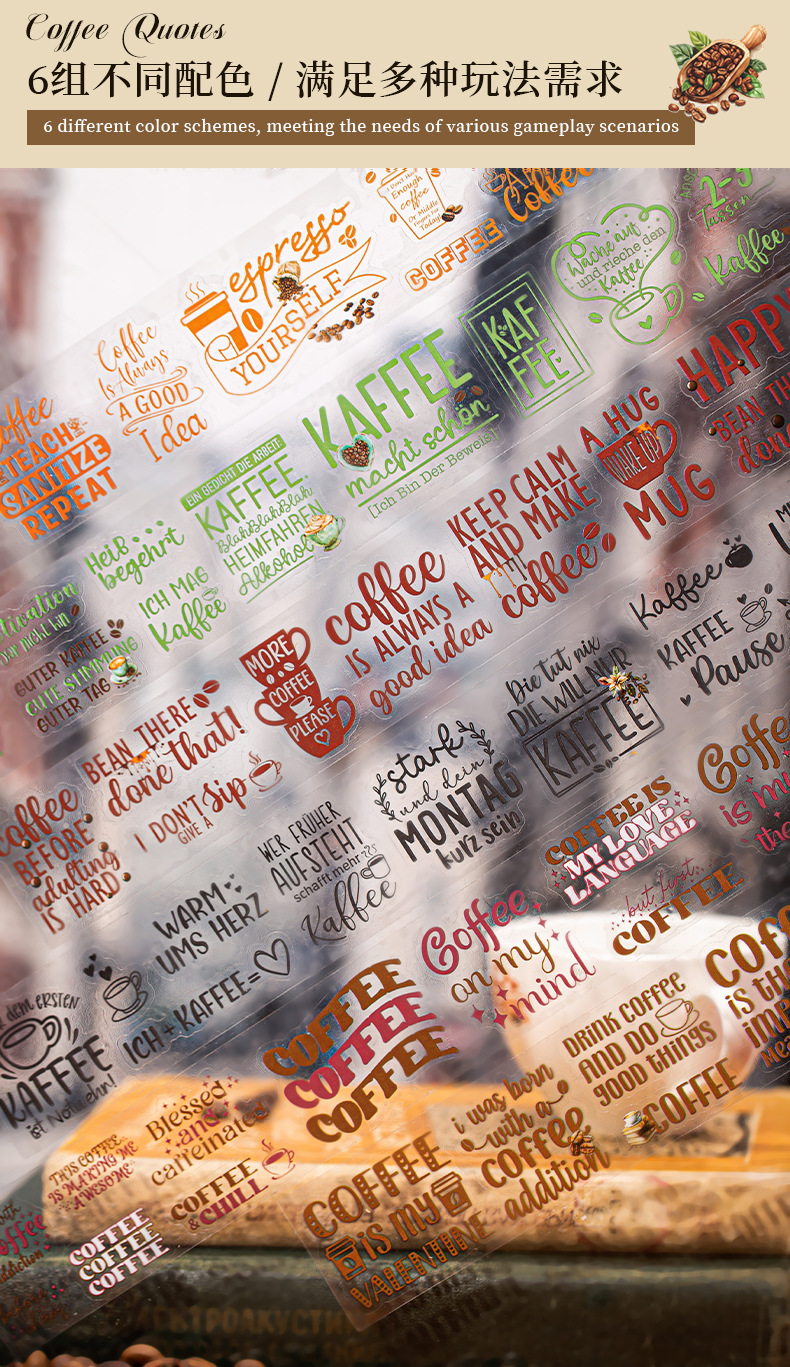 Coffee Quotes
6组不同配色 / 满足多种玩法需求
6 different color schemes, meeting the needs of various gameplay scenarios
I Don't Have
Enough
coffee
Or Middle
Fingers For
Today!
Coffee
espresso
YOURSELF
COFFEE
Wache auf
und rieche den
Kaffee
2-3
Tassen
Kaffee
Coffee
Is Always
A GOOD
Idea
coffee
TEACH
SANITIZE
REPEAT
KAFFEE
macht schön
[Ich Bin Der Beweis!]
KAF
FEE
HAPPY
EIN GEDICHT DIE ARBEIT:
KAFFEE,
BlahBlahBlah
HEIMFAHREN
Alkohol
Heiß
begehrt
ICH MAG
Kaffee
GUTER KAFFEE
GUTE STIMMUNG
GUTER TAG
KEEP CALM
AND MAKE
coffee
A HUG
WAKE UP
MUG
BEAN THERE
done that!
coffee
IS ALWAYS A
good idea
MORE
COFFEE
PLEASE
I DON'T
GIVE A
Sip
coffee
BEFORE
adulting
IS HARD
Kaffee
KAFFEE
Pause
Die tut nix
DIE WILL NUR
KAFFEE
stark
und dein
MONTAG
kurz sein
WER FRÜHER
AUFSTEHT
schafft mehr
Kaffee
WARM
UMS HERZ
ICH+KAFFEE=
dem ERSTEN
KAFFEE
ist Notwehr!
Coffee
is my
COFFEE IS
MY LOVE
LANGUAGE
but first
COFFEE
Coffee
on my
mind
COFFEE
COFFEE
COFFEE
Blessed
and
caffeinated
THIS COFFEE
IS MAKING ME
AWESOME
COFFEE
& CHILL
COFFEE
COFFEE
COFFEE
DRINK COFFEE
AND DO
good THINGS
COFFEE
i was born
with a
coffee
addiction
COFFEE
is my
VALENTINE